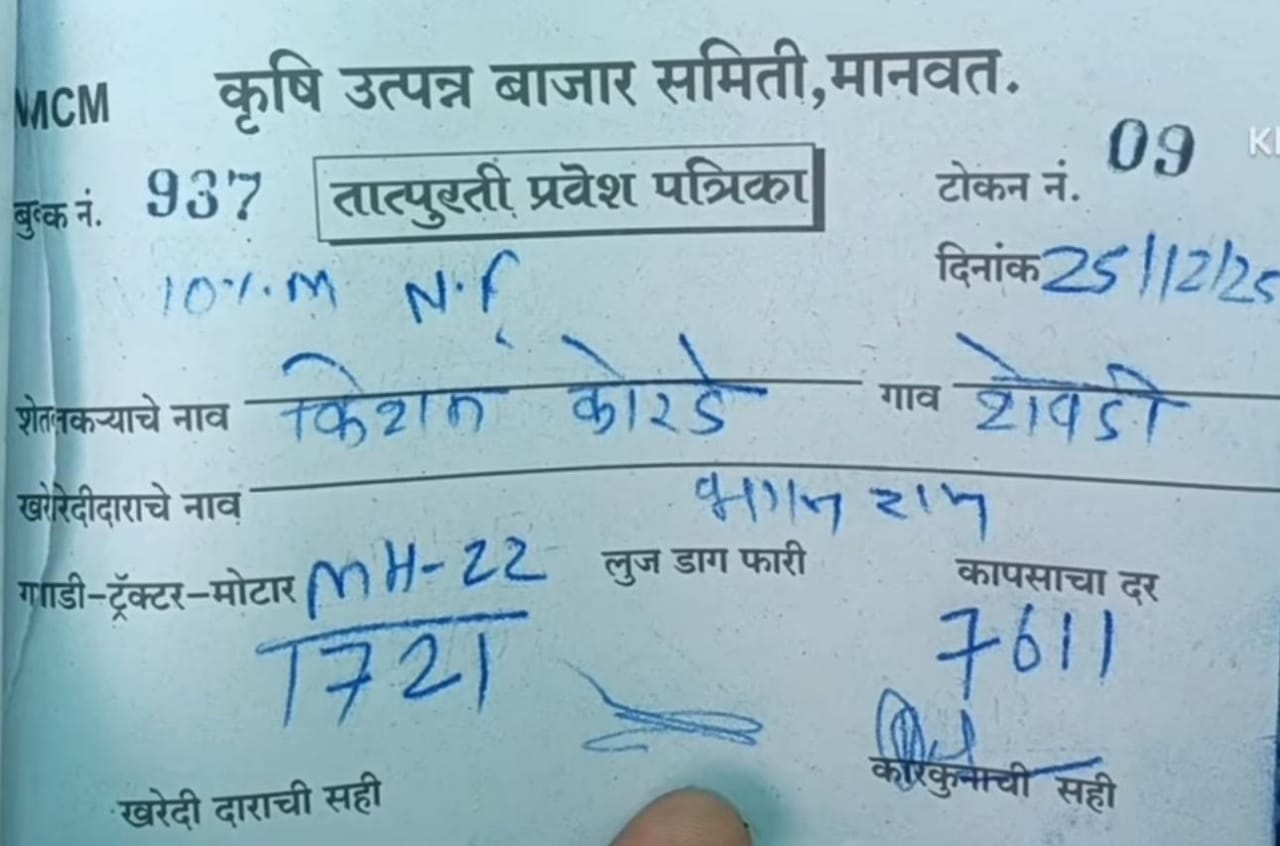 MCM कृषि उत्पन्न बाजार समिती,मानवत.
बुक नं. 937 तात्पुरती प्रवेश पत्रिका टोकन नं. 09
10%.M N.F दिनांक 25/12/25
शेतकऱ्याचे नाव किशन कोरडे गाव शेवडी
खरेदीदाराचे नाव राम
गाडी-ट्रॅक्टर-मोटार MH-22 लुज डाग फारी कापसाचा दर
1721 7611
खरेदी दाराची सही कारकुनाची सही